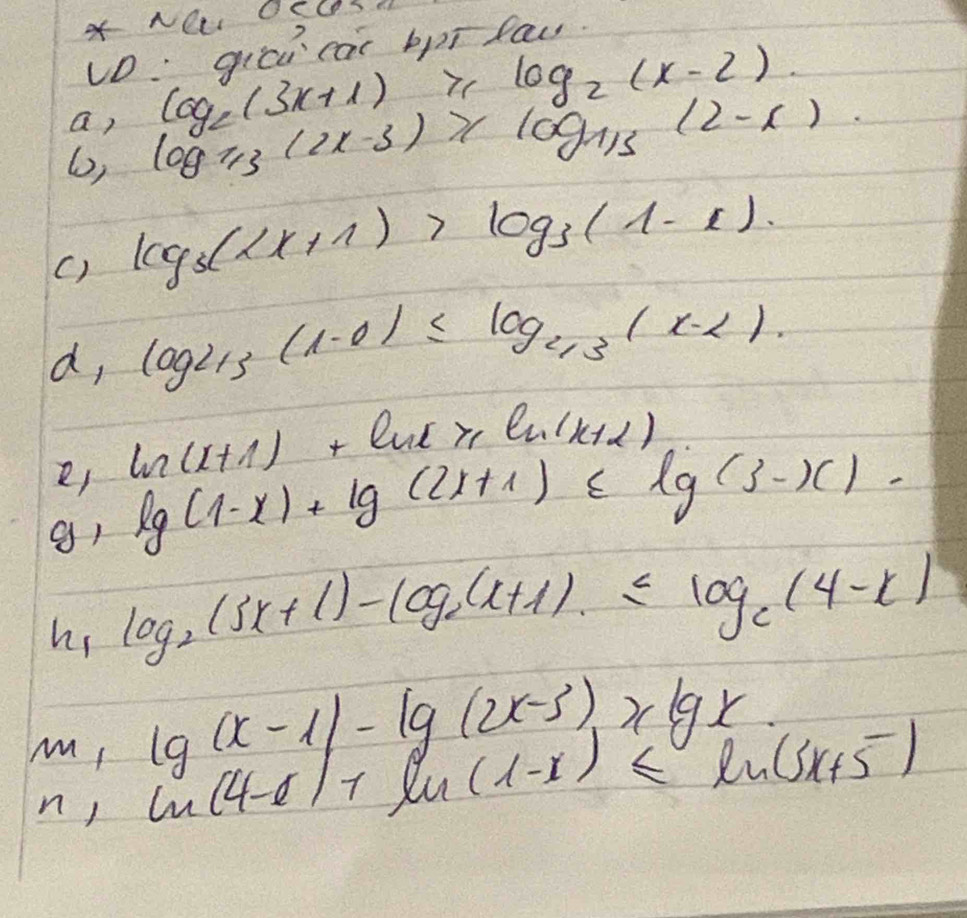 * Nếu
VD: giải các bpt sau.
a, log₂(3x+1) ≥ log₂(x-2).
b, log₁/₃(2x-3) ≥ log₁/₃(2-x).
c, log₃(2x+1) > log₃(1-x).
d, log₂/₃(1-x) ≤ log₂/₃(x-2).
e, ln(x+1) + lnx ≥ ln(x+2).
g, lg(1-x) + lg(2x+1) ≤ lg(3-x).
h, log₂(3x+1) - log₂(x+1). ≤ log₂(4-x)
m, lg(x-1) - lg(2x-3) ≥ lgx.
n, ln(4-x) + ln(1-x) ≤ ln(3x+5)